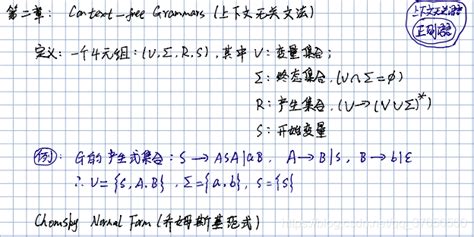 第二章: Context-free Grammars (上下文无关文法)
上下文无关语言
正则语言
定义: 一个4元组: (V, Σ, R, S), 其中 V: 变量集合;
Σ: 终态集合, (V∩Σ=φ)
R: 产生集合, (V→(V∪Σ)*)
S: 开始变量
例: G的产生式集合: S→ASA|aB, A→B|S, B→b|ε
∴ V={S,A,B}, Σ={a,b}, S={S}
Chomsky Normal Form (乔姆斯基范式)